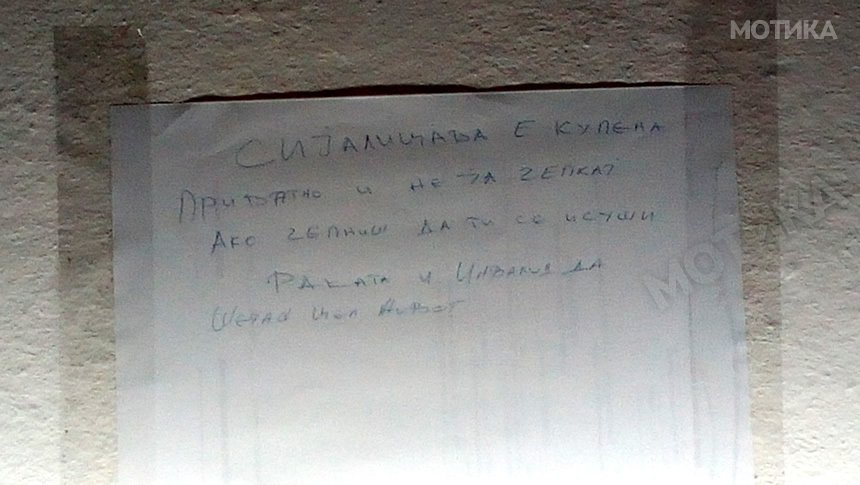 МОТИКА
СИЈАЛИЦАВА Е КУПЕНА
ПРИВАТНО И НЕ ЈА ЧЕПКАЈ
АКО ЧЕПНИШ ДА ТИ СЕ ИСУШИ
РАКАТА И ИНВАЛИД ДА
ШЕТАШ ЦЕЛ ЖИВОТ
МОТИКА